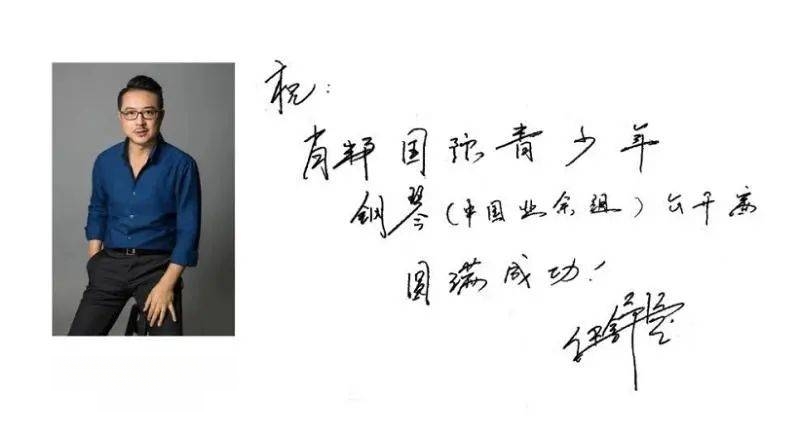 祝：
肖邦国际青少年
钢琴（中国业余组）公开赛
圆满成功！